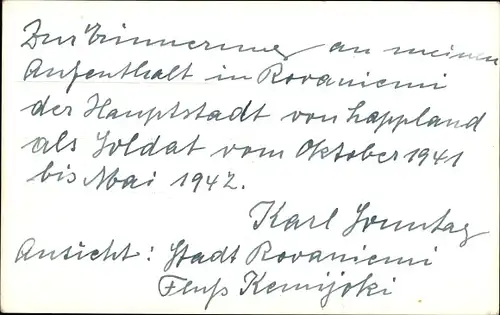 Zur Erinnerung an meinen
Aufenthalt in Rovaniemi
der Hauptstadt von Lappland
als Soldat vom Oktober 1941
bis Mai 1942.
Karl Sonntag
Ansicht: Stadt Rovaniemi
Fluß Kemijoki